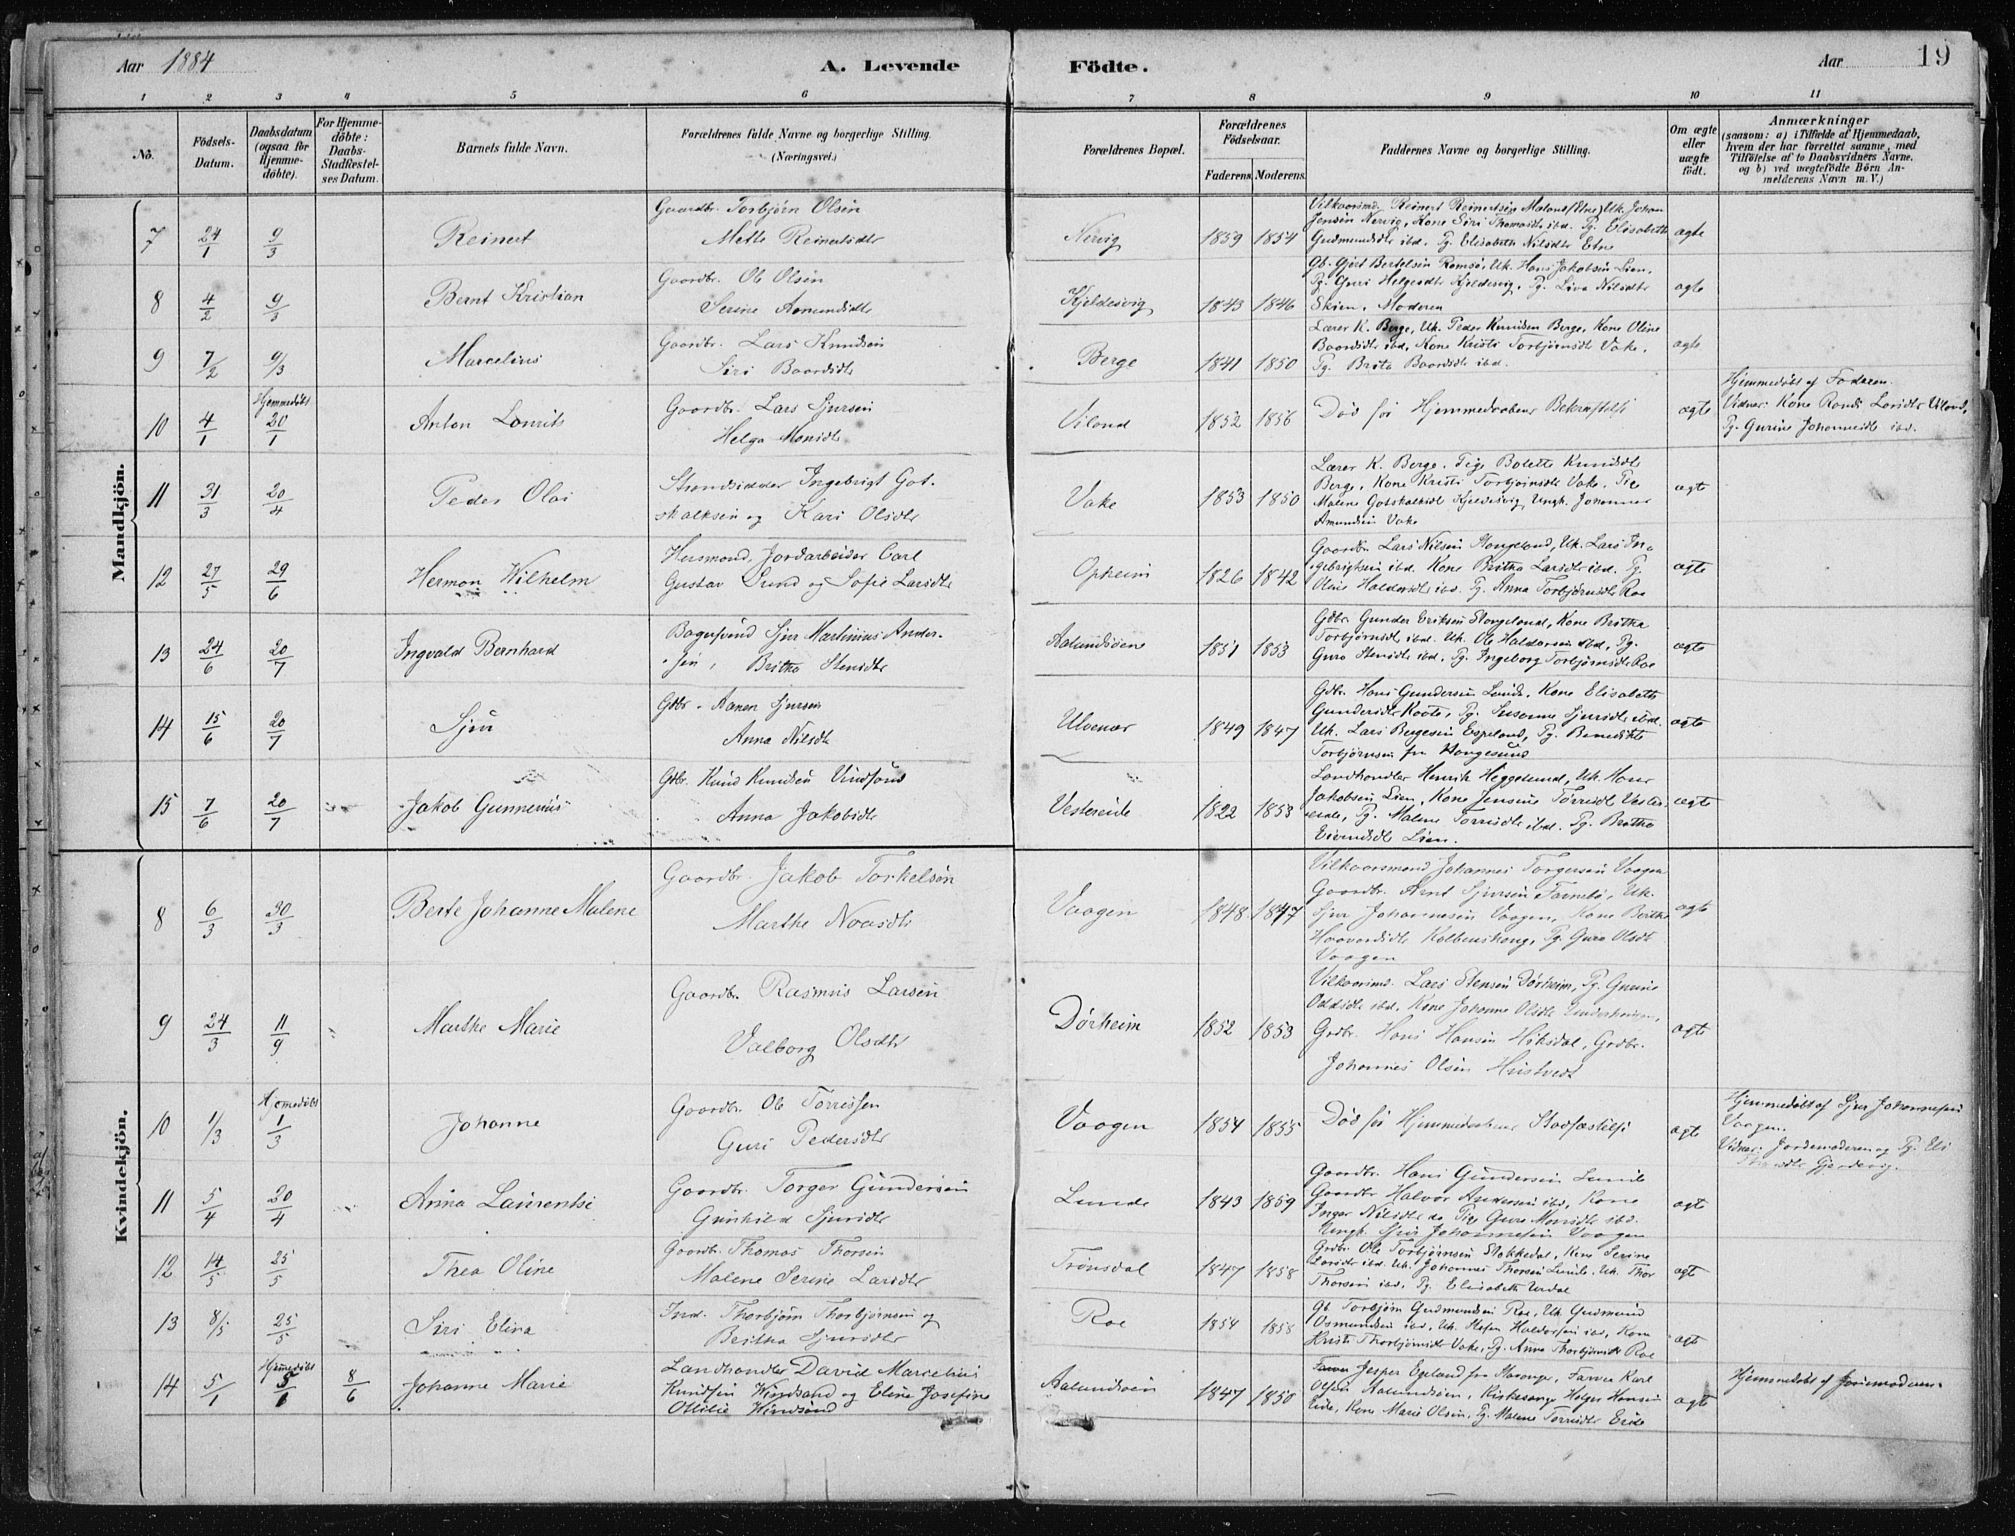 Aar 1884
A. Levende Födte.
Aar
19
1 2 3 4 5 6 7 8 9 10 11
No.
Födsels-Datum.
Daabsdatum (ogsaa for Hjemme-döbte).
For Hjemme-döbte: Daabs-Stadfæstel-ses Datum.
Barnets fulde Navn.
Forældrenes fulde Navne og borgerlige Stilling. (Næringsvei.)
Forældrenes Bopæl.
Forældrenes Födselsaar.
Faderens Moderens
Faddernes Navne og borgerlige Stilling.
Om ægte eller uægte födt.
Anmærkninger
(saasom: a) i Tilfælde af Hjemmedaab, hvem der har forrettet samme, med Tilföielse af to Daabsvidners Navne, og b) ved uægtefödte Börn An-melderens Navn m. V.)
Mandkjön.
7 24/1 9/3 Reinert
Gaardbr. Torbjörn Olsen
Mette Reinertsdtr
Nervig 1859 1854
Jensen Nervig, Kone Siri Thomasdtr ibd. Pg. Elisabeth
Gudmundsdtr ibd. Pg. Elisabeth Nilsdtr Etne
ægte
8 4/2 9/3 Bernt Kristian
Gaardbr. Ole Olsen
Serine Amundsdtr
Kjeldesvig 1843 1846
Gb. Gjert Bertelsen Romsö, Uk. Hans Jakobsen Lien,
Pg. Guri Helgesdtr Kjeldesvig, Pg. Liva Nilsdtr
Skien. Moderen
ægte
9 7/2 9/3 Marcelius
Gaardbr. Lars Knudsen
Siri Baardsdtr
Berge 1841 1850
Lærer K. Berge, Uk. Peder Knudsen Berge, Kone Oline
Baardsdtr ibd, Kone Kristi Torbjörnsdtr Vake,
Pg. Brita Baardsdtr ibd.
ægte
10 4/1 Hjemmedöbt 20/1 Anton Lourits
Gaardbr. Lars Sjursen
Helga Monsdtr
Viland 1852 1856
Död för Hjemmedaabens Bekræftelse
ægte
Hjemmedöbt af Faderen.
Vidner: Kone Randi Larsdtr Viland,
Pg. Gurine Johannesdtr ibd.
11 31/3 20/4 Peder Olai
Strandsidder Ingebrigt Got-
skalksen og Kari Olsdtr
Vake 1853 1850
Lærer K. Berge. Pige Bolette Knudsdtr
Berge, Kone Kristi Torbjörnsdtr Vake, Pige
Malene Gotskalksdtr Kjeldesvig, Ungk. Johannes
Amundsen Vake
ægte
12 27/5 29/6 Herman Vilhelm
Husmand, Jordarbeider Carl
Gustav Lund og Sofie Larsdtr
Opheim 1826 1842
Gaardbr. Lars Nilsen Stongeland, Uk. Lars In-
gebrigtsen ibd. Kone Britha Larsdtr ibd. Pg.
Oline Haldorsdtr ibd. Pg. Anna Torbjörnsdtr Roe
ægte
13 24/6 20/7 Ingvald Bernhard
Bagersvend Sjur Martinius Ander-
sen, Britha Stensdtr
Aalundsöen 1851 1853
Gdbr Gunder Eriksen Stongeland, Kone Britha
Torbjörnsdt ibd. Uk. Ole Haldorsen ibd, Pg.
Guro Stensdtr ibd, Pg. Ingeborg Torbjörnsdtr Roe
ægte
14 15/6 20/7 Sjur
Gdbr. Aanen Sjursen
Anna Nilsdtr
Ulvenæs 1849 1847
Gdbr. Hans Gundersen Lunde, Kone Elisabeth
Gundersdtr Koote, Pg. Susanne Sjursdtr ibd.
Uk. Lars Bergesen Espeland, Pg. Benedikte
Torbjörnsen fra Haugesund
ægte
15 7/6 20/7 Jakob Gunnerius
Gdbr. Knud Knudsen Vindsand
Anna Jakobsdtr
Vestereide 1822 1853
Landhandler Henrik Heggelund, Uk. Hans
Jakobsen Lien, Kone Jensine Torrisdt Vester-
eide, Pg. Malene Torrisdtr ibd. Pg. Britha
Eivindsdt Lien.
ægte
Kvindekjön.
8 6/3 30/3 Berte Johanne Malene
Gaardbr. Jakob Torkelsen
Marthe Noasdtr
Vaagen 1848 1847
Vilkaarsmand Johannes Torgersen Vaagen
Gaardbr. Arnt Sjursen Tarnebö, Uk.
Sjur Johannesen Vaagen, Kone Britha
Haavardsdtr Kolbenshaug, Pg. Guro Olsdt
Vaagen
ægte
9 24/3 11/9 Marthe Marie
Gaardbr. Rasmus Larsen
Valborg Olsdtr
Dörheim 1852 1853
Vilkaarsm. Lars Stensen Dörheim, Pg. Gunie
Oddsdtr ibd, Kone Johanne Olsdtr
Grdbr. Hans Hansen Höksdal, Grdbr.
Johannes Olsen Hustvedt
ægte
10 1/3 Hjemmedöbt 1/3 Johanne
Gaardbr. Ole Torressen
Guri Pedersdtr
Vaagen 1854 1855
Död för Hjemmedaabens Stadfæstelse
ægte
Hjemmedöbt af Sjur Johannesen
Vaagen.
Vidner: Jordemoderen og Pg. Eli
11 5/4 20/4 Anna Laurentse
Gaardbr. Torger Gundersen
Gunhild Sjursdtr
Lunde 1843 1859
Gaardbr. Hans Gundersen Lunde
Gaardbr Halvor Andersen ibd, Kone
Inger Nilsdtr do Pige Guro Monsdtr ibd.
Ungk. Sjur Johannesen Vaagen
ægte
12 14/5 25/5 Thea Oline
Gaardbr. Thomas Thorsen
Malene Serine Larsdtr
Trönsdal 1847 1858
Grdbr. Ole Torbjörnsen Stakkedal, Kone Serine
Larsdtr ibd. Uk. Johannes Thorsen Lunde, Uk. Thor
Thorsen ibd, Pg. Elisabeth Urdal
ægte
13 8/5 25/5 Siri Elina
Ind. Thorbjörn Thorbjörnsen og
Britha Sjursdtr
Roe 1854 1858
Gb Torbjörn Gudmundsen Roe, Uk. Gudmund
Osmundsen ibd, Uk. Steen Haldorsen ibd, Kone
Kristi Thorbjörnsdt Vake, Pg. Anna Thorbjörnsdt Roe
ægte
14 5/1 Hjemmedöbt 5/1 8/6 Johanne Marie
Landhandler David Marcelius
Knudsen Windsand og Eline Josefine
Ottilie Windsand
Aalundsöen 1847 1850
Jesper Egeland fra Stavanger, Farver Karl
Olsen Aalundsöen, Kirkesanger Helge Hansen
Eide, Kone Marie Olsen, Pg. Malene Torrisdtr Eide
ægte
Hjemmedöbt af Jordemoderen.